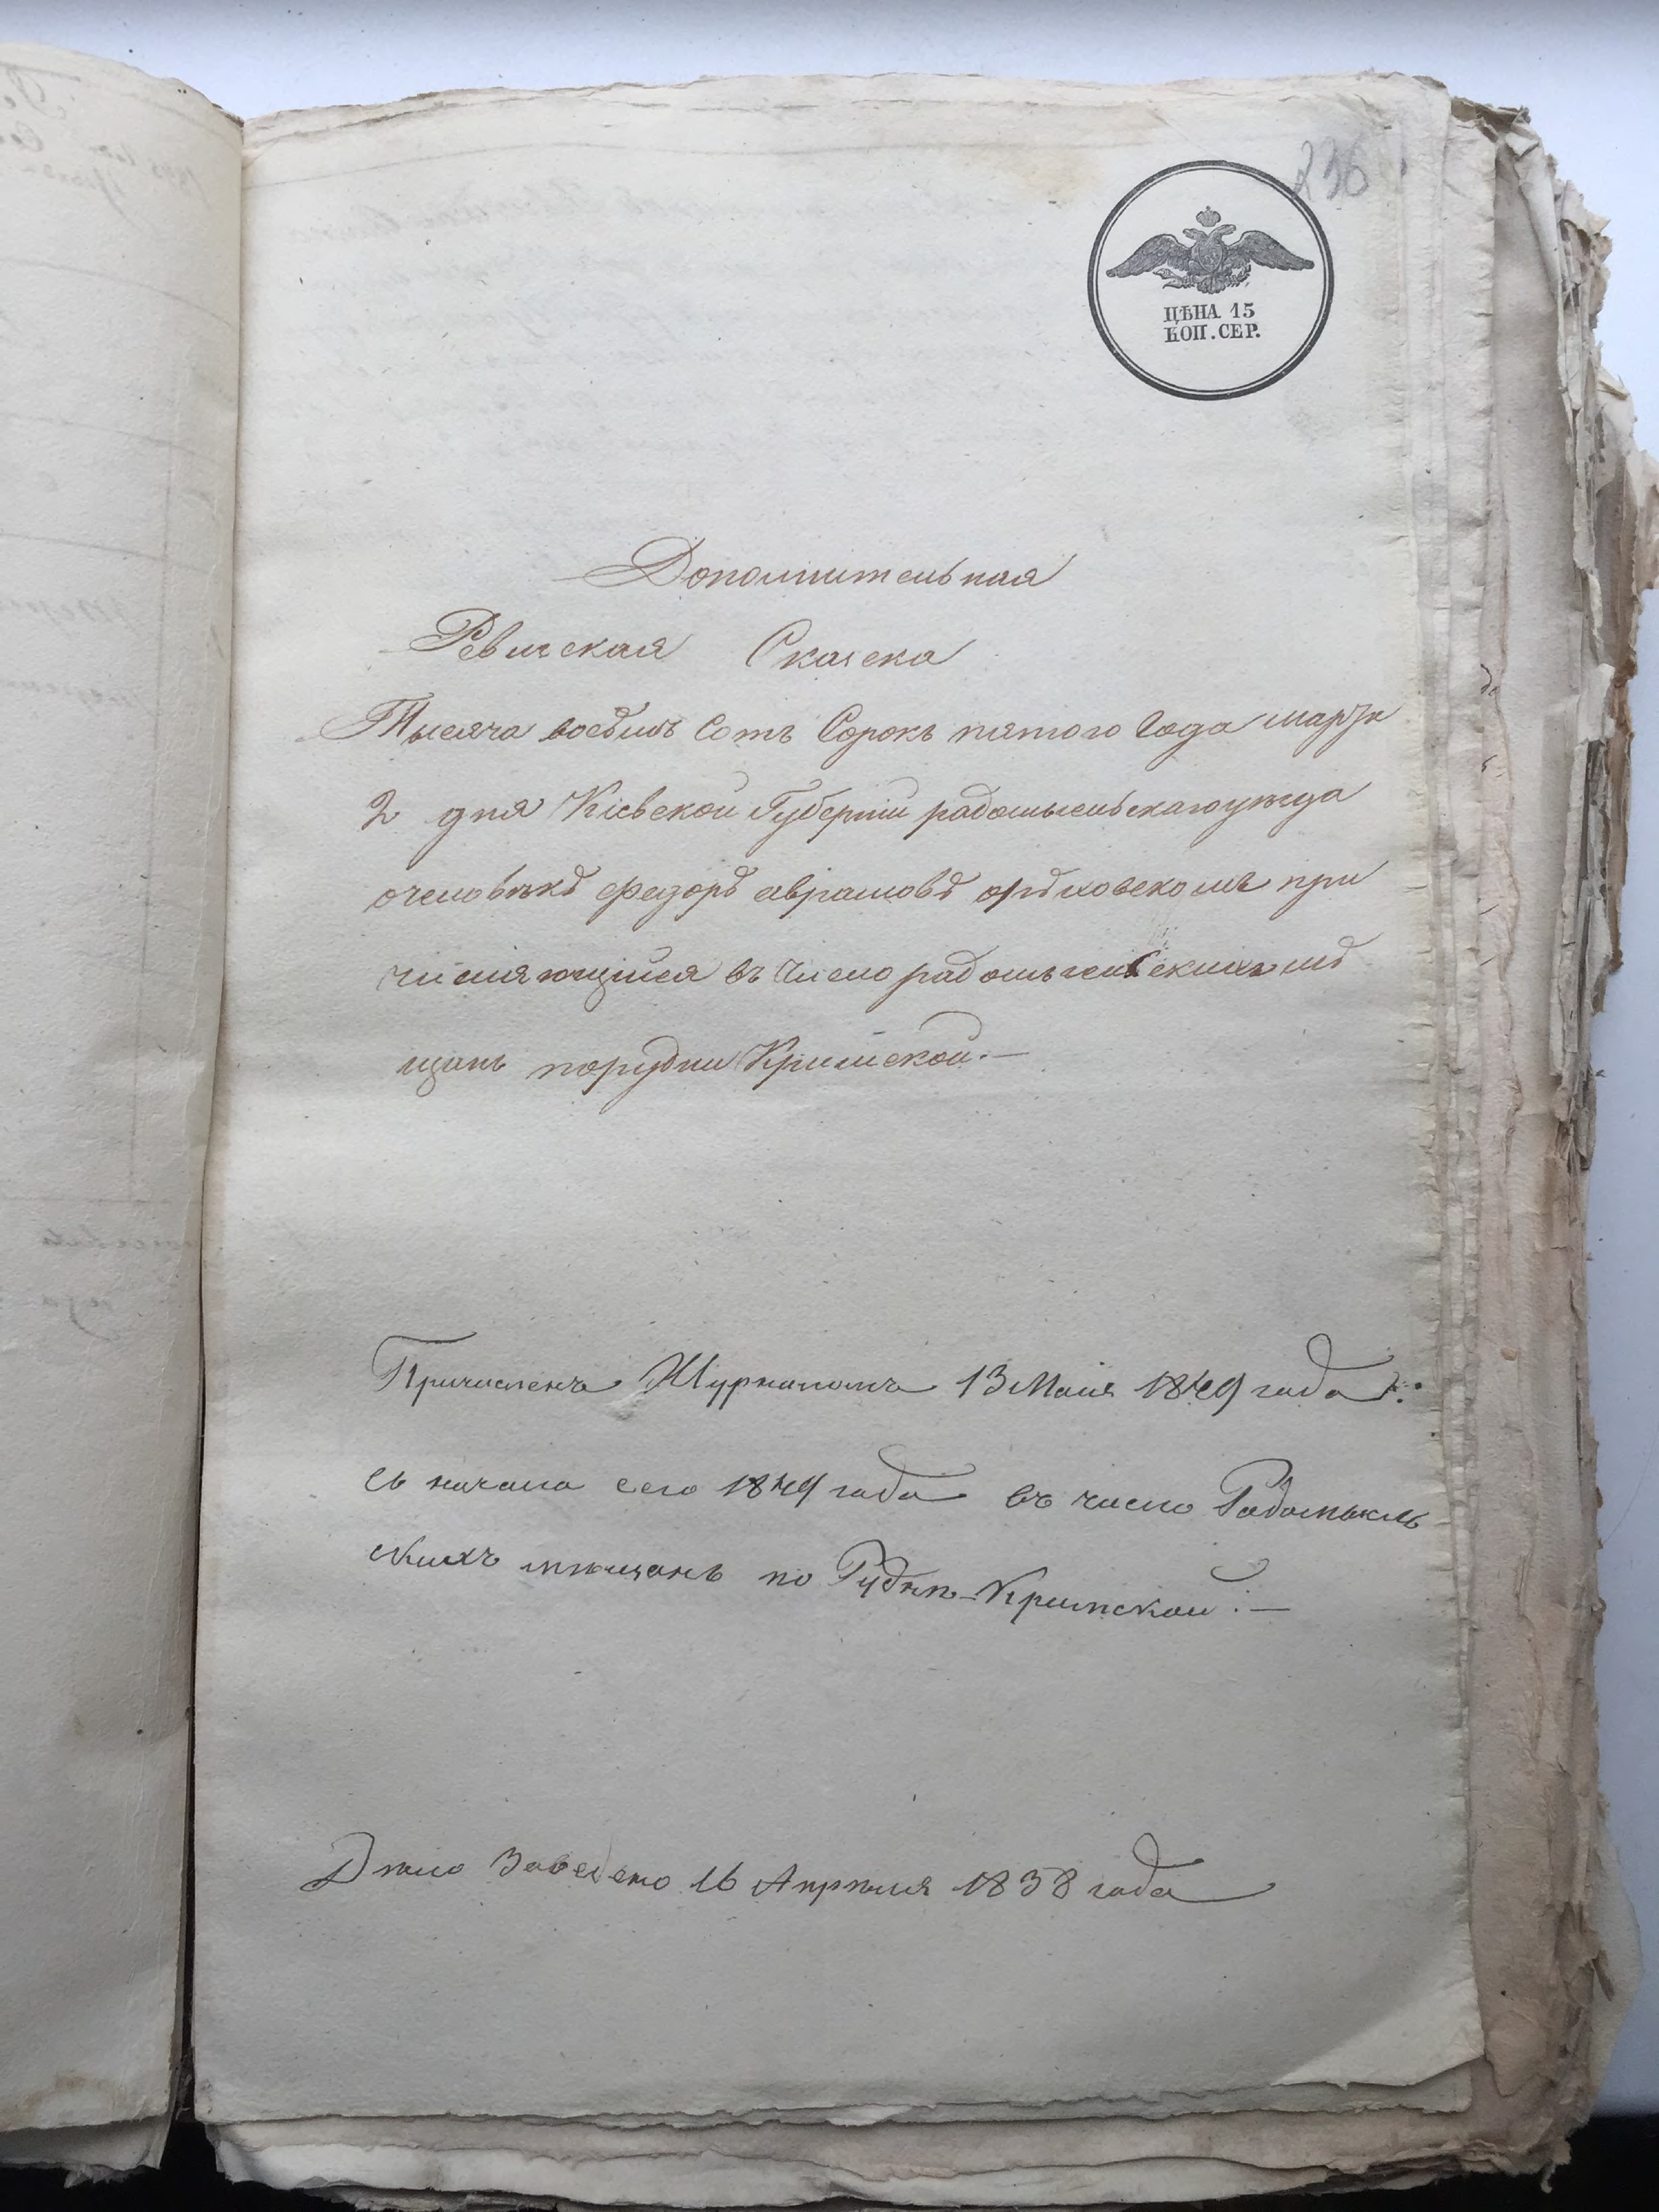 236
ЦѢНА 15
КОП. СЕР.
Дополнительная
Ревиская Скаска
Тысяча восѣмь Сотъ Сорокъ пятого Года марта
2 дня Кіевской Губерніи радомысльскаго уезда
очеловѣкѣ федорѣ аврамовѣ при
числяющийся въ Число радомысльСкихъ мѣ
щанъ порудни Кримской.—
Причисленъ Журналомъ 13 Маія 1849 года:
съ начала сего 1849 года въ число Радомысль
скихъ мѣщанъ по Руднѣ-Кримской.—
Дѣло Заведено 16 Апрѣля 1838 года